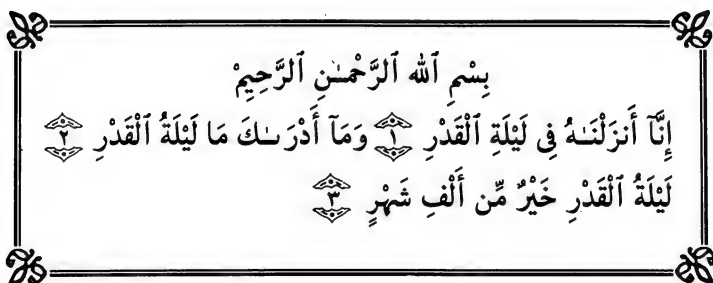 بِسْمِ ٱللهِ ٱلرَّحْمَـٰنِ ٱلرَّحِيمْ
إِنَّآ أَنزَلْنَـٰهُ فِى لَيْلَةِ ٱلْقَدْرِ ١ وَمَآ أَدْرَىـٰكَ مَا لَيْلَةُ ٱلْقَدْرِ ٢
لَيْلَةُ ٱلْقَدْرِ خَيْرٌ مِّن أَلْفِ شَهْرٍ ٣